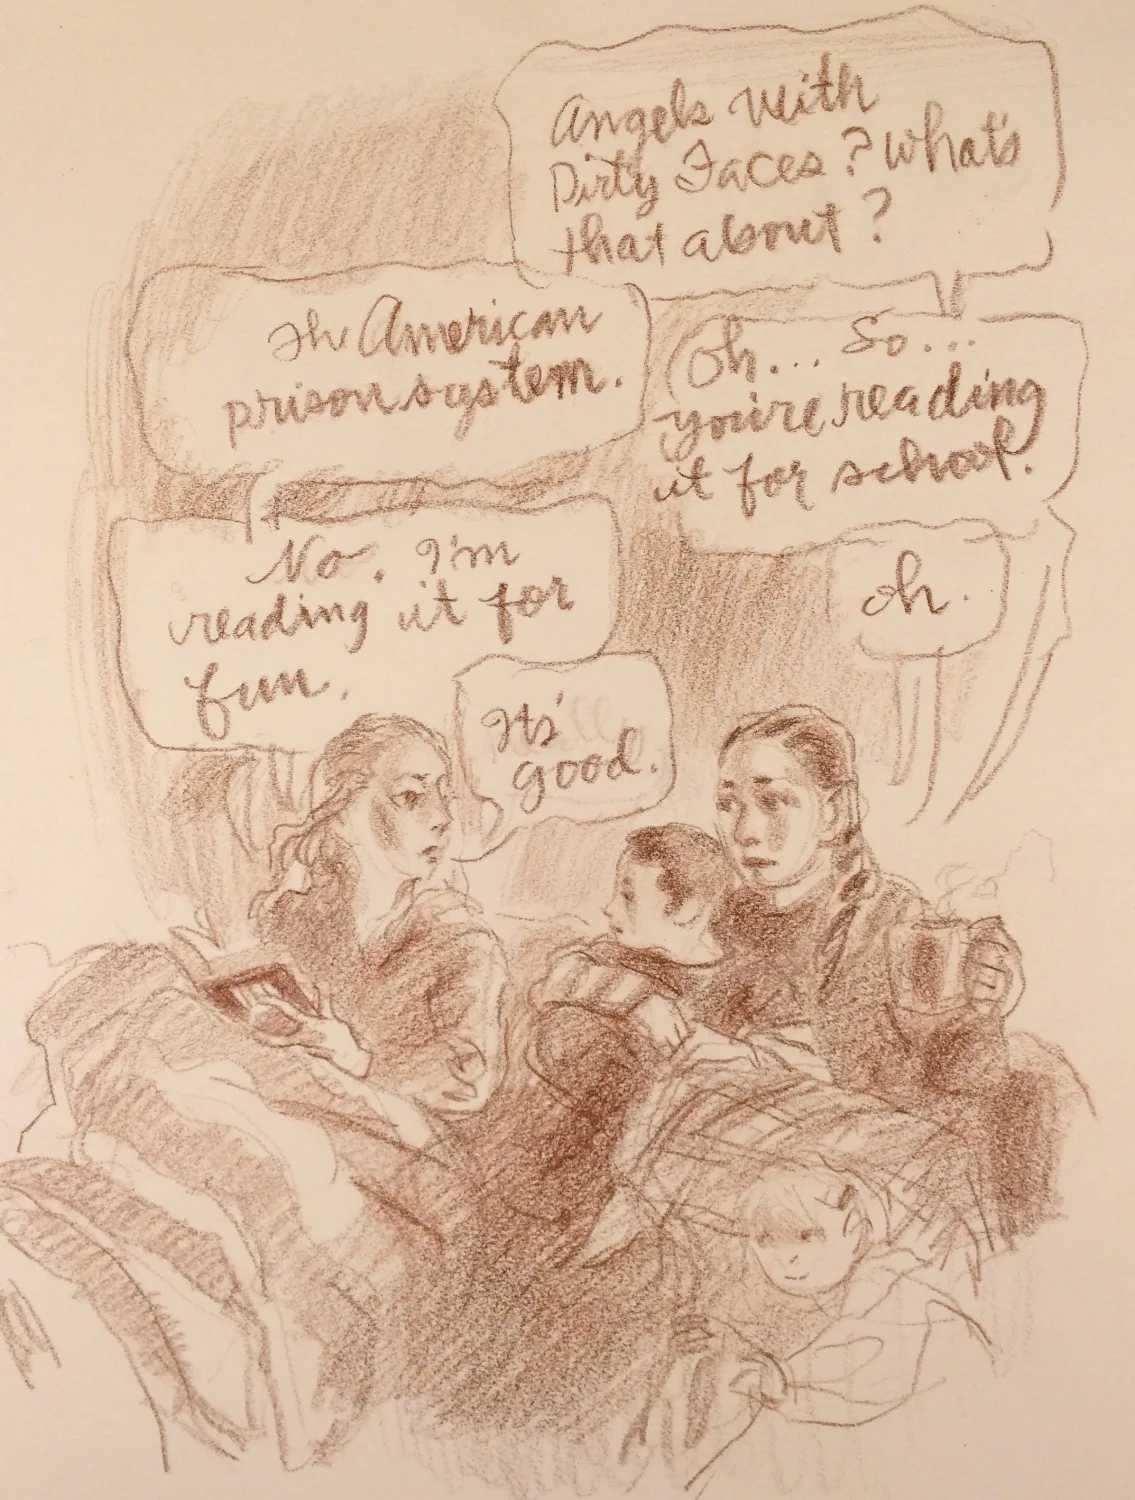 Angels With
Dirty Faces? What's
that about?
The American
prison system.
Oh... So...
you're reading
it for school.
No. I'm
reading it for
fun.
Oh.
Its'
good.